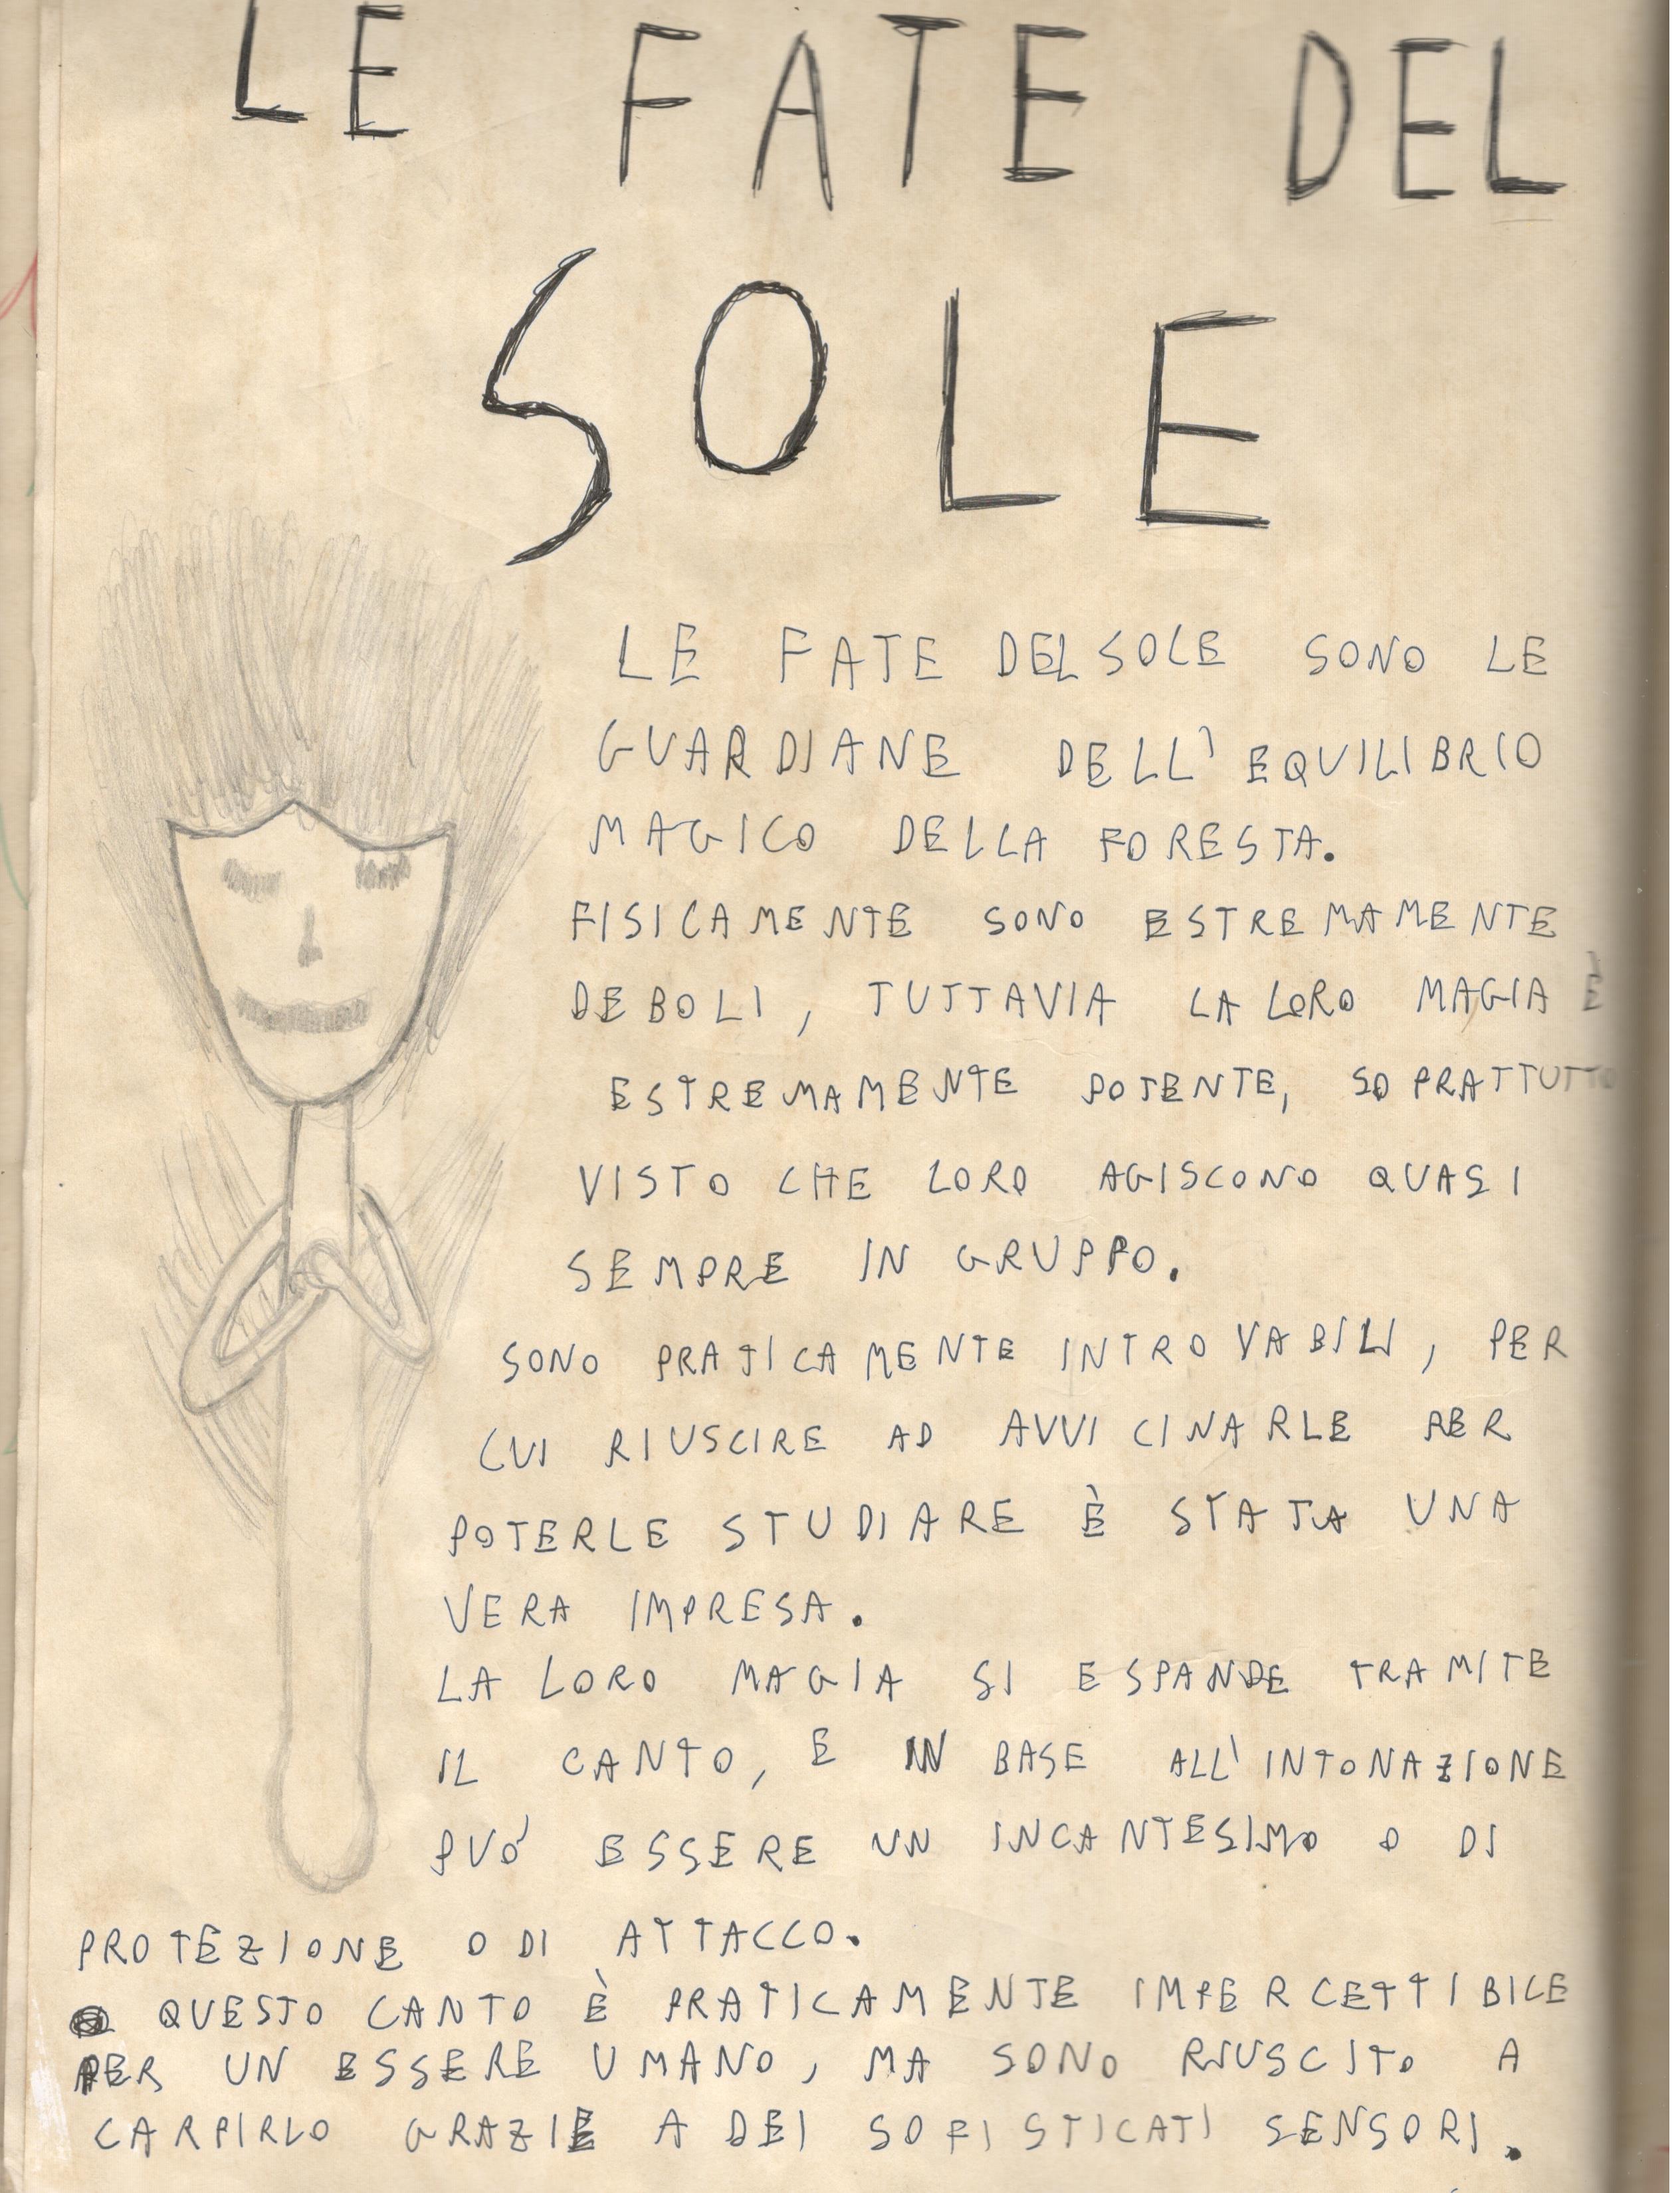 LE FATE DEL
SOLE
LE FATE DEL SOLE SONO LE
GUARDIANE DELL'EQUILIBRIO
MAGICO DELLA FORESTA.
FISICAMENTE SONO ESTREMAMENTE
DEBOLI, TUTTAVIA LA LORO MAGIA È
ESTREMAMENTE POTENTE, SOPRATTUTTO
VISTO CHE LORO AGISCONO QUASI
SEMPRE IN GRUPPO.
SONO PRATICAMENTE INTROVABILI, PER
CUI RIUSCIRE AD AVVICINARLE PER
POTERLE STUDIARE È STATA UNA
VERA IMPRESA.
LA LORO MAGIA SI ESPANDE TRAMITE
IL CANTO, E IN BASE ALL'INTONAZIONE
PUO' ESSERE UN INCANTESIMO O DI
PROTEZIONE O DI ATTACCO.
QUESTO CANTO È PRATICAMENTE IMPERCETTIBILE
PER UN ESSERE UMANO, MA SONO RIUSCITO A
CARPIRLO GRAZIE A DEI SOFISTICATI SENSORI.